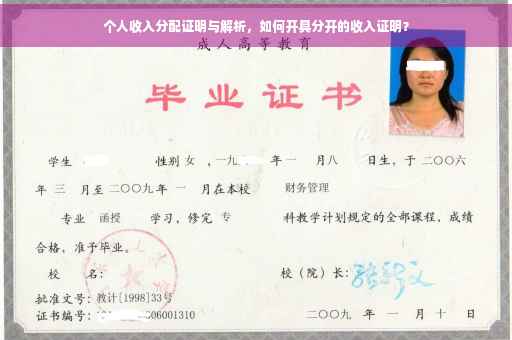 个人收入分配证明与解析，如何开具分开的收入证明？
成人高等教育
毕业证书
学生 性别 女 ，一九 年 一 月 八 日生，于 二〇〇六
年 三 月至 二〇〇九年 一 月在本校 财务管理
专业 函授 学习，修完 专 科教学计划规定的全部课程，成绩
合格，准予毕业。
校 名： 校（院）长：
批准文号：教计[1998]33号
证书编号： 06001310 二〇〇九 年 一 月 十 日